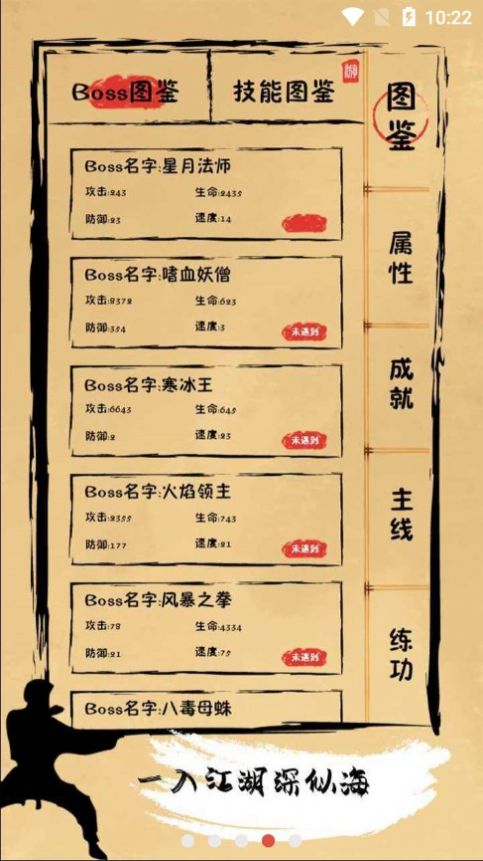 10:22
Boss图鉴
技能图鉴
图鉴
Boss名字:星月法师
攻击:243
生命:2435
防御:23
速度:14
Boss名字:嗜血妖僧
攻击:8372
生命:623
防御:354
速度:3
未遇到
Boss名字:寒冰王
攻击:6643
生命:645
防御:2
速度:23
未遇到
Boss名字:火焰领主
攻击:2355
生命:743
防御:177
速度:21
未遇到
Boss名字:风暴之拳
攻击:78
生命:4334
防御:21
速度:75
未遇到
Boss名字:八毒母蛛
属性
成就
主线
练功
一入江湖深似海